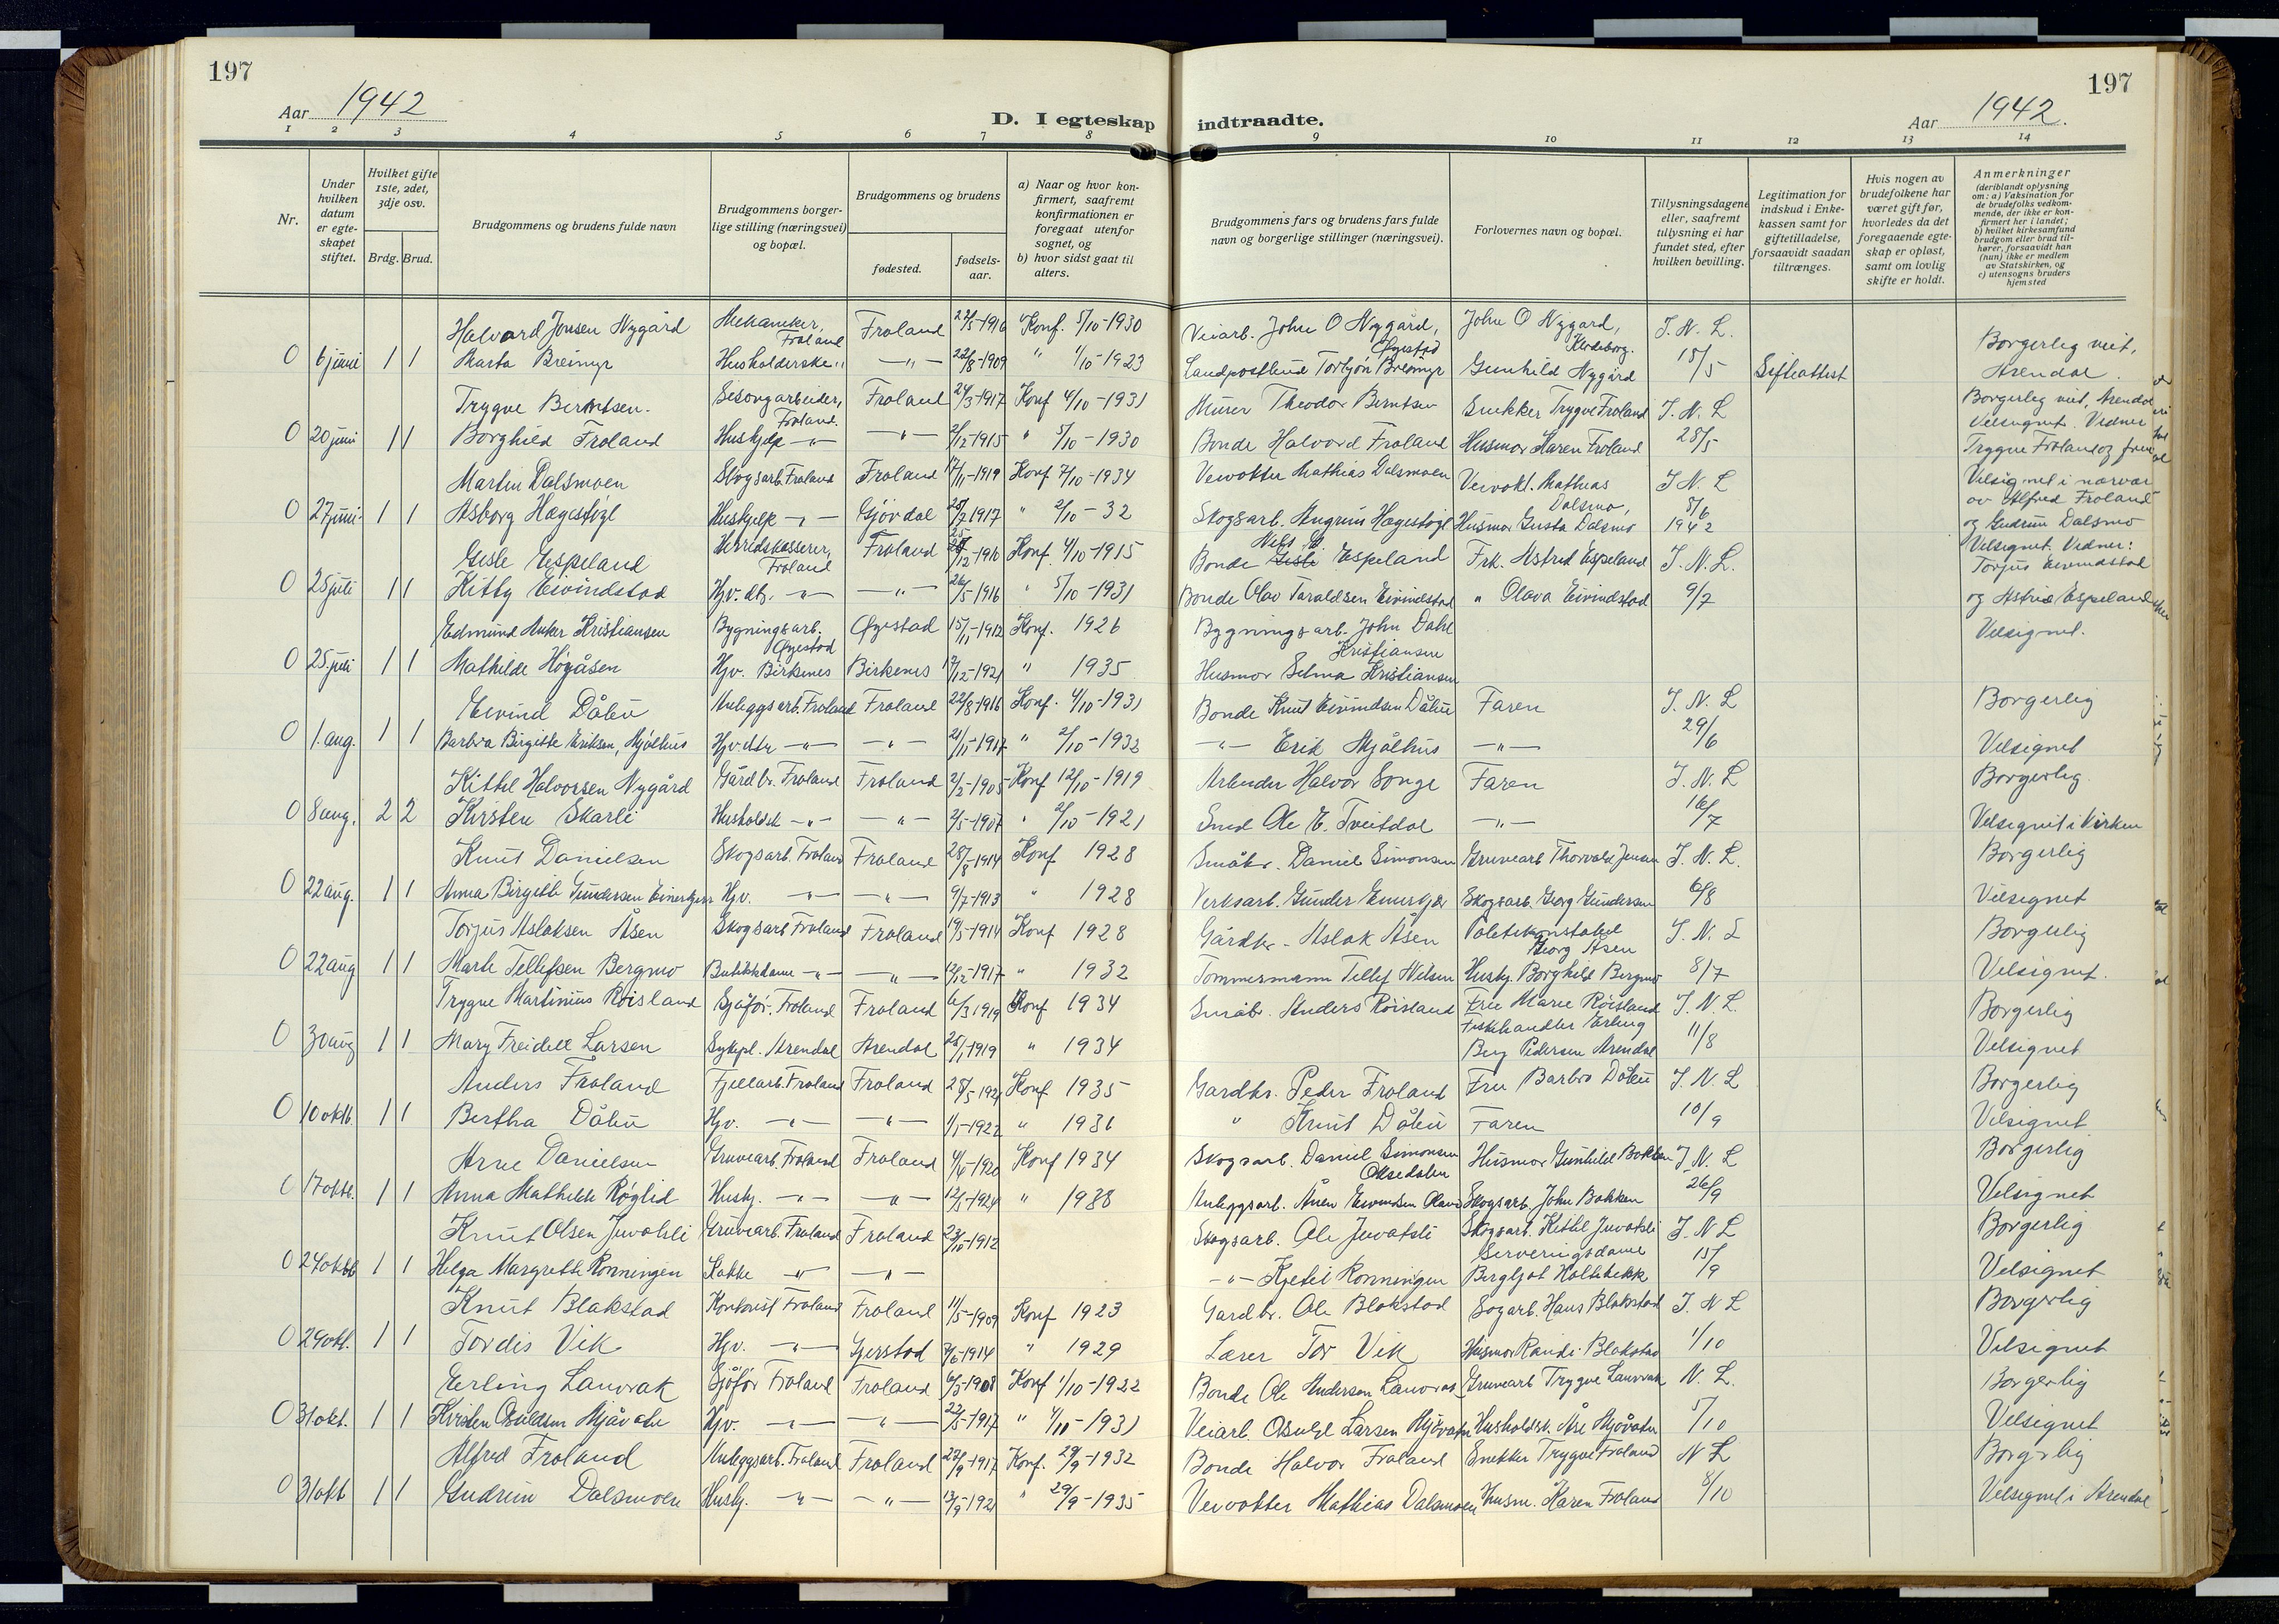 197
197
Aar 1942
D. I egteskap indtraadte.
Aar 1942.
1 2 3 4 5 6 7 8 9 10 11 12 13 14
Nr.
Under hvilken datum er egteskapet stiftet.
Hvilket gifte 1ste, 2det, 3dje osv.
Brdg. Brud.
Brudgommens og brudens fulde navn
Brudgommens borgerlige stilling (næringsvei) og bopæl.
Brudgommens og brudens
fødested.
fødselsaar.
a) Naar og hvor konfirmert, saafremt konfirmationen er foregaat utenfor sognet, og
b) hvor sidst gaat til alters.
Brudgommens fars og brudens fars fulde navn og borgerlige stillinger (næringsvei).
Forlovernes navn og bopæl.
Tillysningsdagene eller, saafremt tillysning ei har fundet sted, efter hvilken bevilling.
Legitimation for indskud i Enkekassen samt for giftetilladelse, forsaavidt saadan tiltrænges.
Hvis nogen av brudefolkene har været gift før, hvorledes da det foregaaende egteskap er opløst, samt om lovlig skifte er holdt.
Anmerkninger
(deriblandt oplysning om: a) Vaksination for de brudefolks vedkommende, der ikke er konfirmert her i landet; b) hvilket kirkesamfund brudgom eller brud tilhører, forsaavidt han (hun) ikke er medlem av Statskirken, og c) utensogns bruders hjemsted
Halvard Jonsen Nygård Mekaniker, Froland Froland 1916 Konf. 5/10-1930 Veiarb. John O Nygård, Øyestad John O Nygård, J. N. L. Borgerleg viet,
0 6 juni 1 1 Marta Breimyr Husholderske " —"— 22/8-1909 " 1/10-1923 Torbjørn Breimyr Gunhild Nygård 15/5 Arendal.
Trygve Berntsen. Froland. Froland 24/3-1917 Konf 4/10-1931 Murer Theodor Berntsen Snekker Trygve Froland J. N. L Borgerleg viet, Arendal
0 20 juni 1 1 Borghild Froland Huskjelp —"— —"— 2/12-1915 " 5/10-1930 Bonde Halvord Froland Husmor Karen Froland 28/5 Velsignet. Vidner Trygve Froland og frue
Martin Dalsmoen Skogsarb. Froland Froland 17/11-1919 Konf 7/10-1934 Veivokter Mathias Dalsmoen Veivokt. Mathias Dalsmo, J. N. L Velsignet i nærvær av Alfred Froland
0 27 juni 1 1 Asborg Hægestøyl Huskjelp —"— Gjøvdal 1917 " 2/10-32 Skogsarb. Hægestøyl Husmor Gusta Dalsmo 8/6 1942 og Gudrun Dalsmo
Gisle Espeland Herredskasserer, Froland Froland Konf. 4/10-1915 Bonde Espeland Frk. Astrid Espeland J. N. L. Velsignet. Vidner: Torjus Eivindstad
0 25 juli 1 1 Kitty Eivindstad Hjv. dtr. —"— —"— 26/5-1916 " 5/10-1931 Bonde Olav Taraldsen Eivindstad " Olava Eivindstad 9/7 og Astrid Espeland
Edmund Anker Kristiansen Bygningsarb. Øyestad Øyestad 15/11-1912 Konf. 1926 Bygningsarb. John Dahl Kristiansen Velsignet.
0 25. juli 1 1 Mathilde Høgåsen Hjv. Birkenes Birkenes 1921 " 1935 Husmor Selma Kristiansen
Eivind Dålen Anleggsarb. Froland Froland 22/8-1916 Konf. 4/10-1931 Bonde Knut Eivindsen Dålen Faren J. N. L Borgerlig
0 1. aug. 1 1 Barbra Birgitte Eriksen, Mjølhus Hjv. dtr —"— —"— 21/11-1917 " 2/10-1932 —"— Erik Mjålhus —"— 29/6 Velsignet
Kittel Halvorsen Nygård Gårdbr. Froland Froland 1905 Konf 12/10-1919 Arbeider Halvor Songe Faren J. N. L Borgerlig
0 8 aug. 2 2 Kirsten Skarli Husholdsk —"— —"— 2/5-1907 " 2/10-1921 Smed Ole E. Tveitdal —"— 16/7 Velsignet i Kirken
Knut Danielsen Skogsarb. Froland Froland 28/8-1914 Konf 1928 Småbr. Daniel Simonsen Gruvearb Thorvald Jensen J. N. L. Borgerlig
0 22 aug. 1 1 Anna Birgitte Gundersen Hjv. —"— —"— 9/7-1913 " 1928 Verksarb. Gunder Skogsarb. Georg Gundersen 6/8 Velsignet
Torjus Aslaksen Åsen Skogsarb Froland Froland 19/5-1914 Konf 1928 Gårdbr - Aslak Åsen Politikonstabel Georg Åsen J. N. L Borgerlig
0 22 aug 1 1 Marte Tellefsen Bergmo Butikkdame —"— —"— 12/12-1917 " 1932 Tømmermann Tellef Nilsen Huskj. Borghild Bergmo 8/7 Velsignet.
Trygve Martinius Røisland Sjåfør. Froland Froland 6/3 1919 Konf 1934 Småbr. Anders Røisland Fru Marie Røisland J. N. L. Borgerlig
0 30 aug 1 1 Mary Freidell Larsen Sykepl. Arendal Arendal 25/1-1919 " 1934 Fiskehandler Erling Berg Pedersen Arendal 11/8 Velsignet
Anders Froland Fjellarb. Froland Froland Konf 1935 Gardbr. Peder Froland Fru Barbro Dålen J. N. L Borgerlig
0 10 oktb. 1 1 Bertha Dålen Hjv. —"— —"— 1/1-1922 " 1936 " Knut Dålen Faren 10/9 Velsignet
Arne Danielsen Gruvearb. Froland Froland 1920 Konf 1934 Skogsarb. Daniel Simonsen Oksedalen Husmor Gunhild Bakken J. N. L Borgerlig
0 17 oktb. 1 1 Anna Mathilde Røglid Huskj. —"— —"— 12/5-1924 " 1938 Anleggsarb. Skogsarb. John Bakken 26/9 Velsignet
Knut Olsen Juvatsli Gruvearb. Froland Froland 23/10-1912 Skogsarb. Ole Juvatsli Skogsarb. Kittel Juvatsli J. N L Borgerlig
0 24 oktb 1 1 Helga Margrethe Rønningen Kokke —"— —"— —"— Kjetil Rønningen Serveringsdame Bergljot Holtebekk 15/9 Velsignet
Knut Blakstad Froland Froland 11/5-1909 Konf 1923 Gardbr. Ole Blakstad Hans Blakstad J. N L Borgerlig
0 29 okt. 1 1 Tordis Vik Hjv. —"— Gjerstad 1914 " 1929 Lærer Tor Vik Husmor Randi Blakstad 1/10 Velsignet
Erling Lauvrak Sjåfør Froland Froland 6/5-1908 Konf 1/10-1922 Bonde Ole Andersen Lauvrak Gruvearb Trygve Lauvrak N. L. Borgerlig
0 31 okt. 1 1 Kirsten Osuldsen Mjåvatn Hjv. —"— —"— 22/5-1917 " 4/10-1931 Veiarb. Osuld Larsen Mjåvatn Husholdsk. Åse Mjåvatn 5/10 Velsignet
Alfred Froland Anleggsarb. Froland Froland 1917 Konf. 29/9-1932 Bonde Halvor Froland Snekker Trygve Froland N L Borgerlig
0 31 okt 1 1 Gudrun Dalsmoen Huskj. —"— —"— 1921 " 29/9-1935 Veivokter Mathias Dalsmoen Husm. Karen Froland 8/10 Velsignet i Arendal